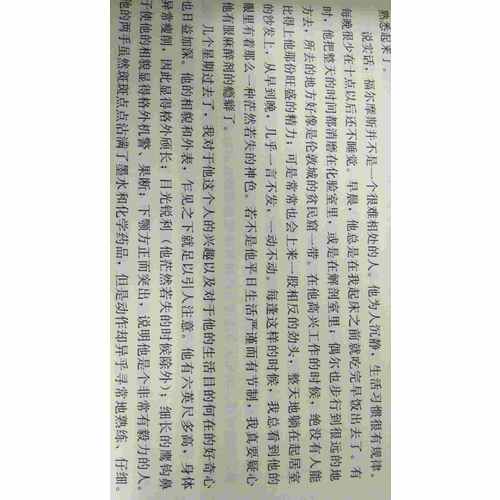 熟悉起来了。
说实话，福尔摩斯并不是一个很难相处的人。他为人沉静，生活习惯很有规律。
每晚很少在十点以后还不睡觉。早晨，他总是在我起床之前就吃完早饭出去了。有
时，他把整天的时间都消磨在化验室里，或是在解剖室里，偶尔也步行到很远的地
方去，所去的地方好像是伦敦城的贫民窟一带。在他高兴工作的时候，绝没有人能
比得上他那份旺盛的精力；可是常常也会上来一股相反的劲头，整天地躺在起居室
的沙发上，从早到晚，几乎一言不发，一动不动。每逢这样的时候，我总看到他的
眼里有着那么一种茫然若失的神色。若不是他平日生活严谨而有节制，我真要疑心
他有服麻醉剂的瘾癖了。
几个星期过去了，我对于他这个人的兴趣以及对于他的生活目的何在的好奇心
也日益加深。他的相貌和外表，乍见之下就足以引人注意。他有六英尺多高，身体
异常瘦削，因此显得格外颀长；目光锐利（他茫然若失的时候除外）；细长的鹰钩鼻
子使他的相貌显得格外机警、果断；下颚方正而突出，说明他是个非常有毅力的人。
他的两手虽然斑斑点点沾满了墨水和化学药品，但是动作却异乎寻常地熟练、仔细。